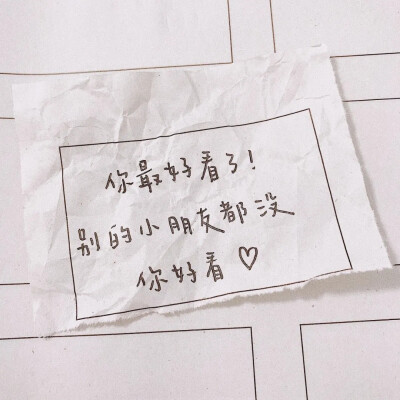 你最好看了!
别的小朋友都没
你好看♡